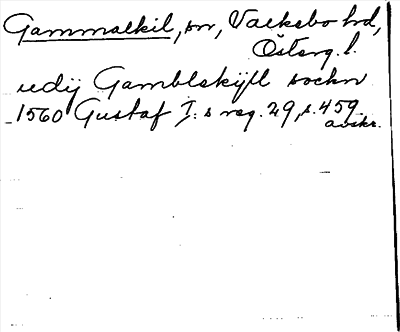 Gammalkil, sn, Valkebo hd,
Österg. l.
udij Gamblekijll sochn
1560 Gustaf I:s reg. 29, s. 459.
avskr.